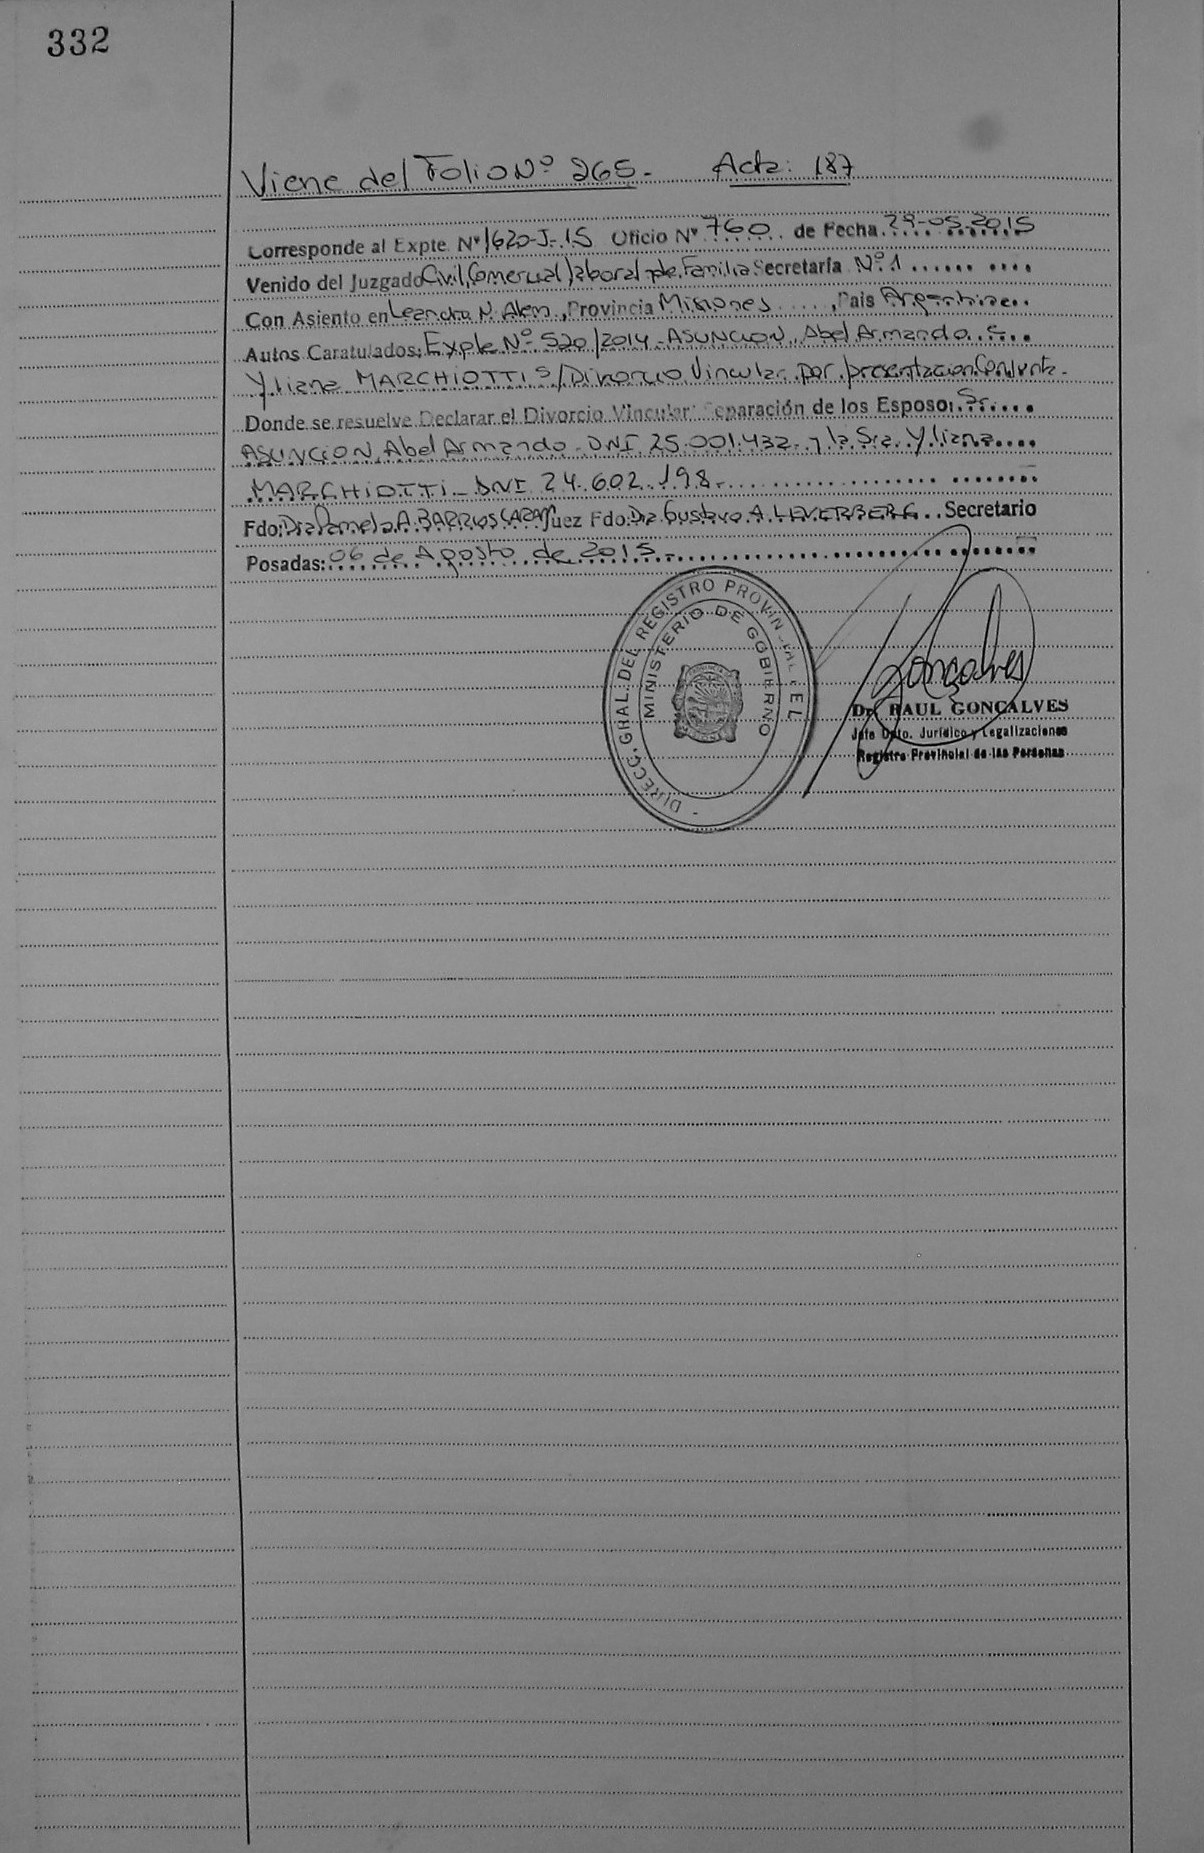 332
Viene del Folio Nº 265.- Acta: 187
Corresponde al Expte. Nº 1620-J-15 Oficio Nº 760 de Fecha 29-05-2015
Venido del Juzgado Civil, Comercial, laboral y de Familia Secretaría Nº 1
Con Asiento en Leandro N. Alem, Provincia Misiones, Pais Argentina
Autos Caratulados: Expte Nº 520/2014 - ASUNCION, Abel Armando
Yliana MARCHIOTTI S/Divorcio Vincular por presentacion Conjunta.-
Donde se resuelve Declarar el Divorcio Vincular Separación de los Esposos: Sr.
ASUNCION, Abel Armando - DNI. 25.001.432 - y la Sra. Yliana
MARCHIOTTI - DNI. 24.602.198.-
Fdo: Dra Pamela A. BARRIOS Juez Fdo: Dr. Gustavo A. Secretario
Posadas: 06 de Agosto de 2015.-
DIRECC. GRAL. DEL REGISTRO PROVINCIAL DE
MINISTERIO DE GOBIERNO
Gonçalves
Dr. RAUL GONÇALVES
Jefe Dpto. Jurídico y Legalizaciones
Registro Provincial de las Personas